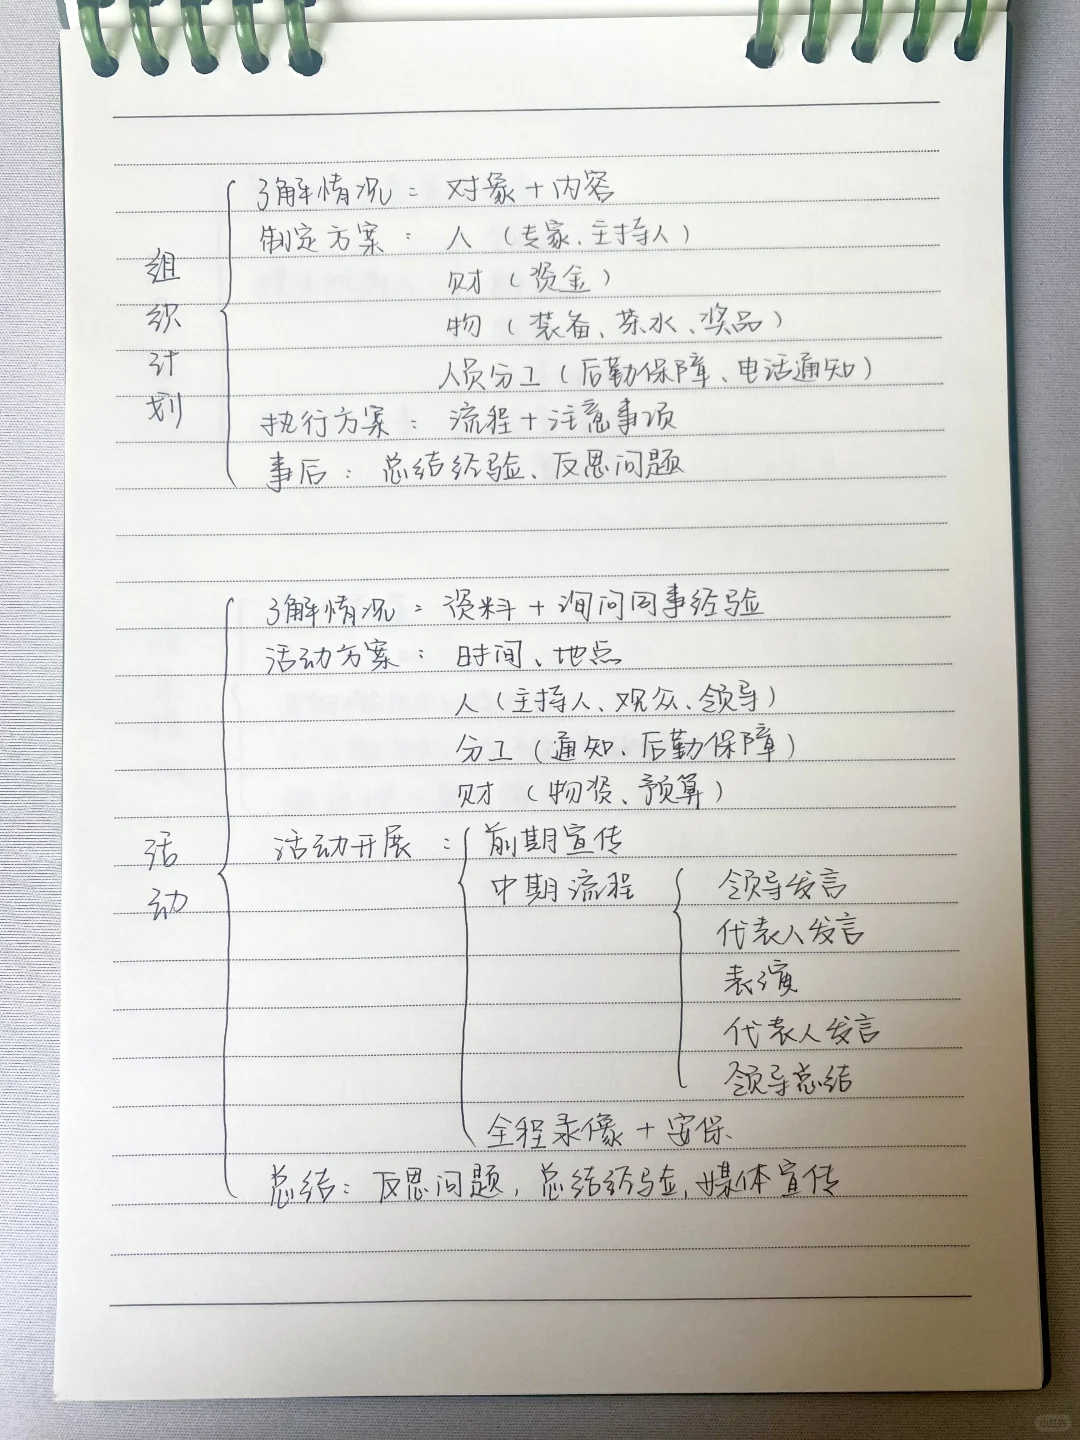 组织计划
了解情况：对象+内容
制定方案：人（专家、主持人）
财（资金）
物（装备、茶水、奖品）
人员分工（后勤保障、电话通知）
执行方案：流程+注意事项
事后：总结经验、反思问题
活动
了解情况：资料+询问同事经验
活动方案：时间、地点
人（主持人、观众、领导）
分工（通知、后勤保障）
财（物资、预算）
活动开展：前期宣传
中期流程
领导发言
代表人发言
表演
代表人发言
领导总结
全程录像+安保
总结：反思问题，总结经验，媒体宣传
小红书